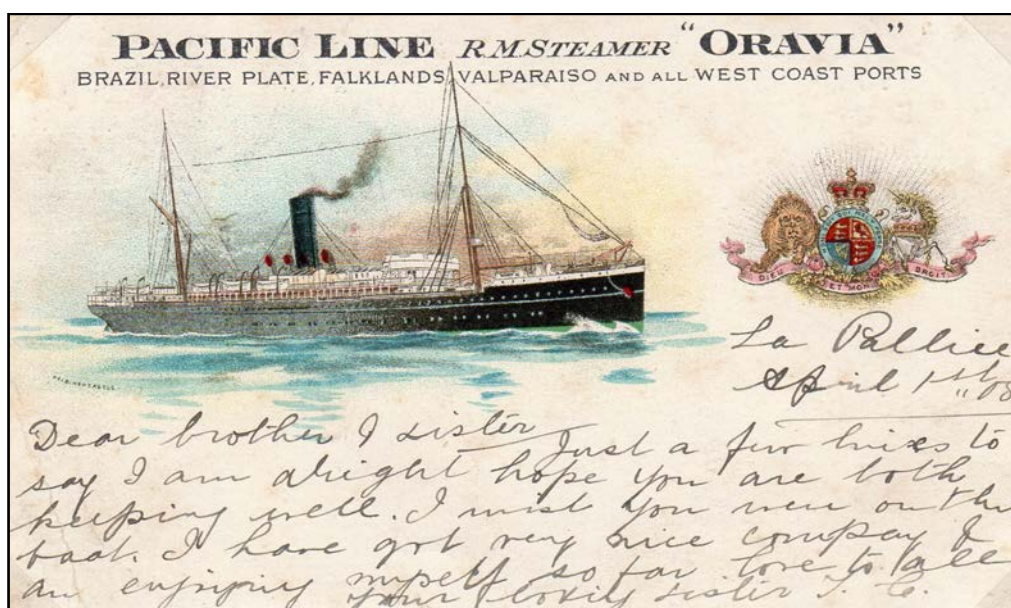 PACIFIC LINE R.M.STEAMER "ORAVIA"
BRAZIL, RIVER PLATE, FALKLANDS, VALPARAISO AND ALL WEST COAST PORTS
DIEU ET MON DROIT
La Pallice
April 1st "08
Dear brother & sister
Just a few lines to
say I am alright hope you are both
keeping well. I wist you were on the
boat. I have got very nice compay &
am enjoying myself so far love to all
your loving sister J. C.